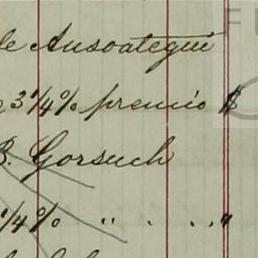 de Ansoategui
3 1/4 % premio $
B. Gorsuch
1/4 % " . . . "